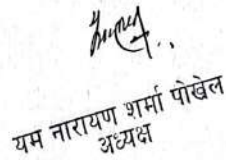 यम नारायण शर्मा पोखेल
अध्यक्ष